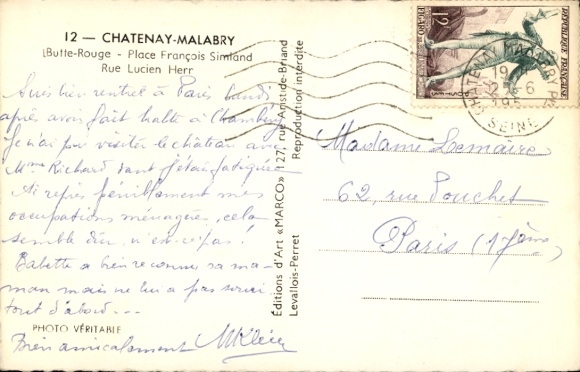 12 — CHATENAY-MALABRY
(Butte-Rouge - Place François Simiand
Rue Lucien Herr
Suis bien rentré à Paris lundi
après avoir fait halte à Chambéry
Je n'ai pu visiter le château avec
Mme Richard tant j'étais fatiguée
Ai repris péniblement mes
occupations ménagères, cela
semble dur, n'est-ce pas!
Babette a bien reconnu sa ma-
man mais ne lui a pas souri
tout d'abord...
PHOTO VÉRITABLE
Bien amicalement
Éditions d'Art «MARCO» 127, rue Aristide-Briand
Levallois-Perret
Reproduction interdite
12F
FIGARO
REPUBLIQUE FRANÇAISE
CHATENAY-MALABRY
19
SEINE
Madame Lemaire
62, rue Pouchet
Paris (17ème)